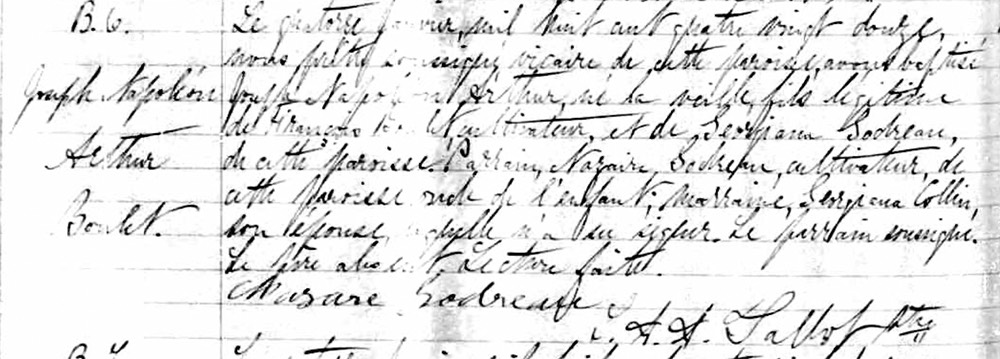 B. 6.
Joseph Napoléon
Arthur
Boulet.
Le quatorze janvier, mil huit cent quatre vingt douze,
nous prêtre soussigné, vicaire de cette paroisse, avons baptisé
Joseph Napoléon Arthur, né la veille, fils légitime
de François Boulet, cultivateur, et de Georgiana Godreau,
de cette paroisse. Parrain, Nazaire Godreau, cultivateur, de
cette paroisse oncle de l'enfant; marraine, Georgiana Collin,
son épouse, laquelle n'a su signer. Le parrain soussigné.
Le père absent, Lecture faite.
Nazare Godreau
A. A. Talbot Ptre